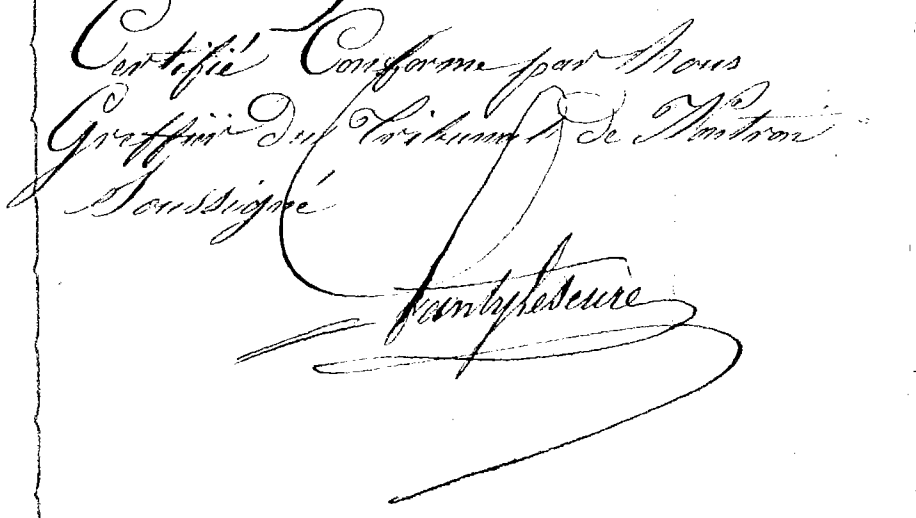 Certifié Conforme par Nous
Greffier Du Tribunal de Nontron
Soussigné